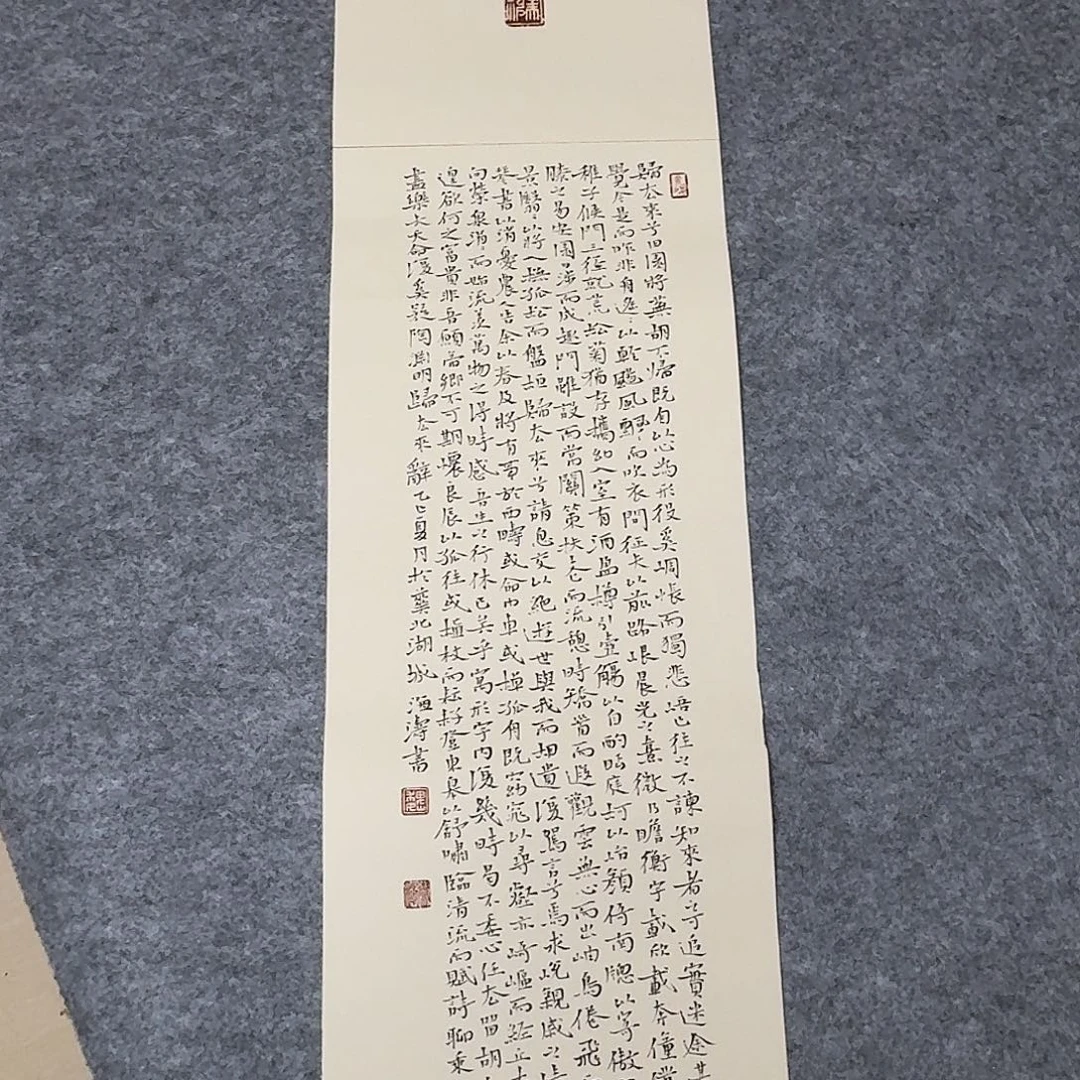 歸去來兮田園將蕪胡不歸既自以心為形役奚惆悵而獨悲悟已往之不諫知來者之可追實迷途其
覺今是而昨非舟遙〻以輕颺風飄〻而吹衣問征夫以前路恨晨光之熹微乃瞻衡宇載欣載奔僮
稚子候門三徑就荒松菊猶存攜幼入室有酒盈樽引壺觴以自酌眄庭柯以怡顏倚南牕以寄傲
膝之易安園日涉而成趣門雖設而常關策扶老而流憩時矯首而遐觀雲無心而出岫鳥倦飛
景翳〻以將入撫孤松而盤桓歸去來兮請息交以絕遊世與我而相遺復駕言兮焉求悅親戚之情
琴書以消憂農人告余以春及將有事於西疇或命巾車或棹孤舟既窈窕以尋壑亦崎嶇而經丘木
向榮泉涓〻而始流羨萬物之得時感吾生之行休已矣乎寓形宇內復幾時曷不委心任去留胡
遑欲何之富貴非吾願帝鄉不可期懷良辰以孤往或植杖而耘耔登東皋以舒嘯臨清流而賦詩聊乘
盡樂夫天命復奚疑陶淵明歸去來辭乙巳夏月於龔北湖城海濤書